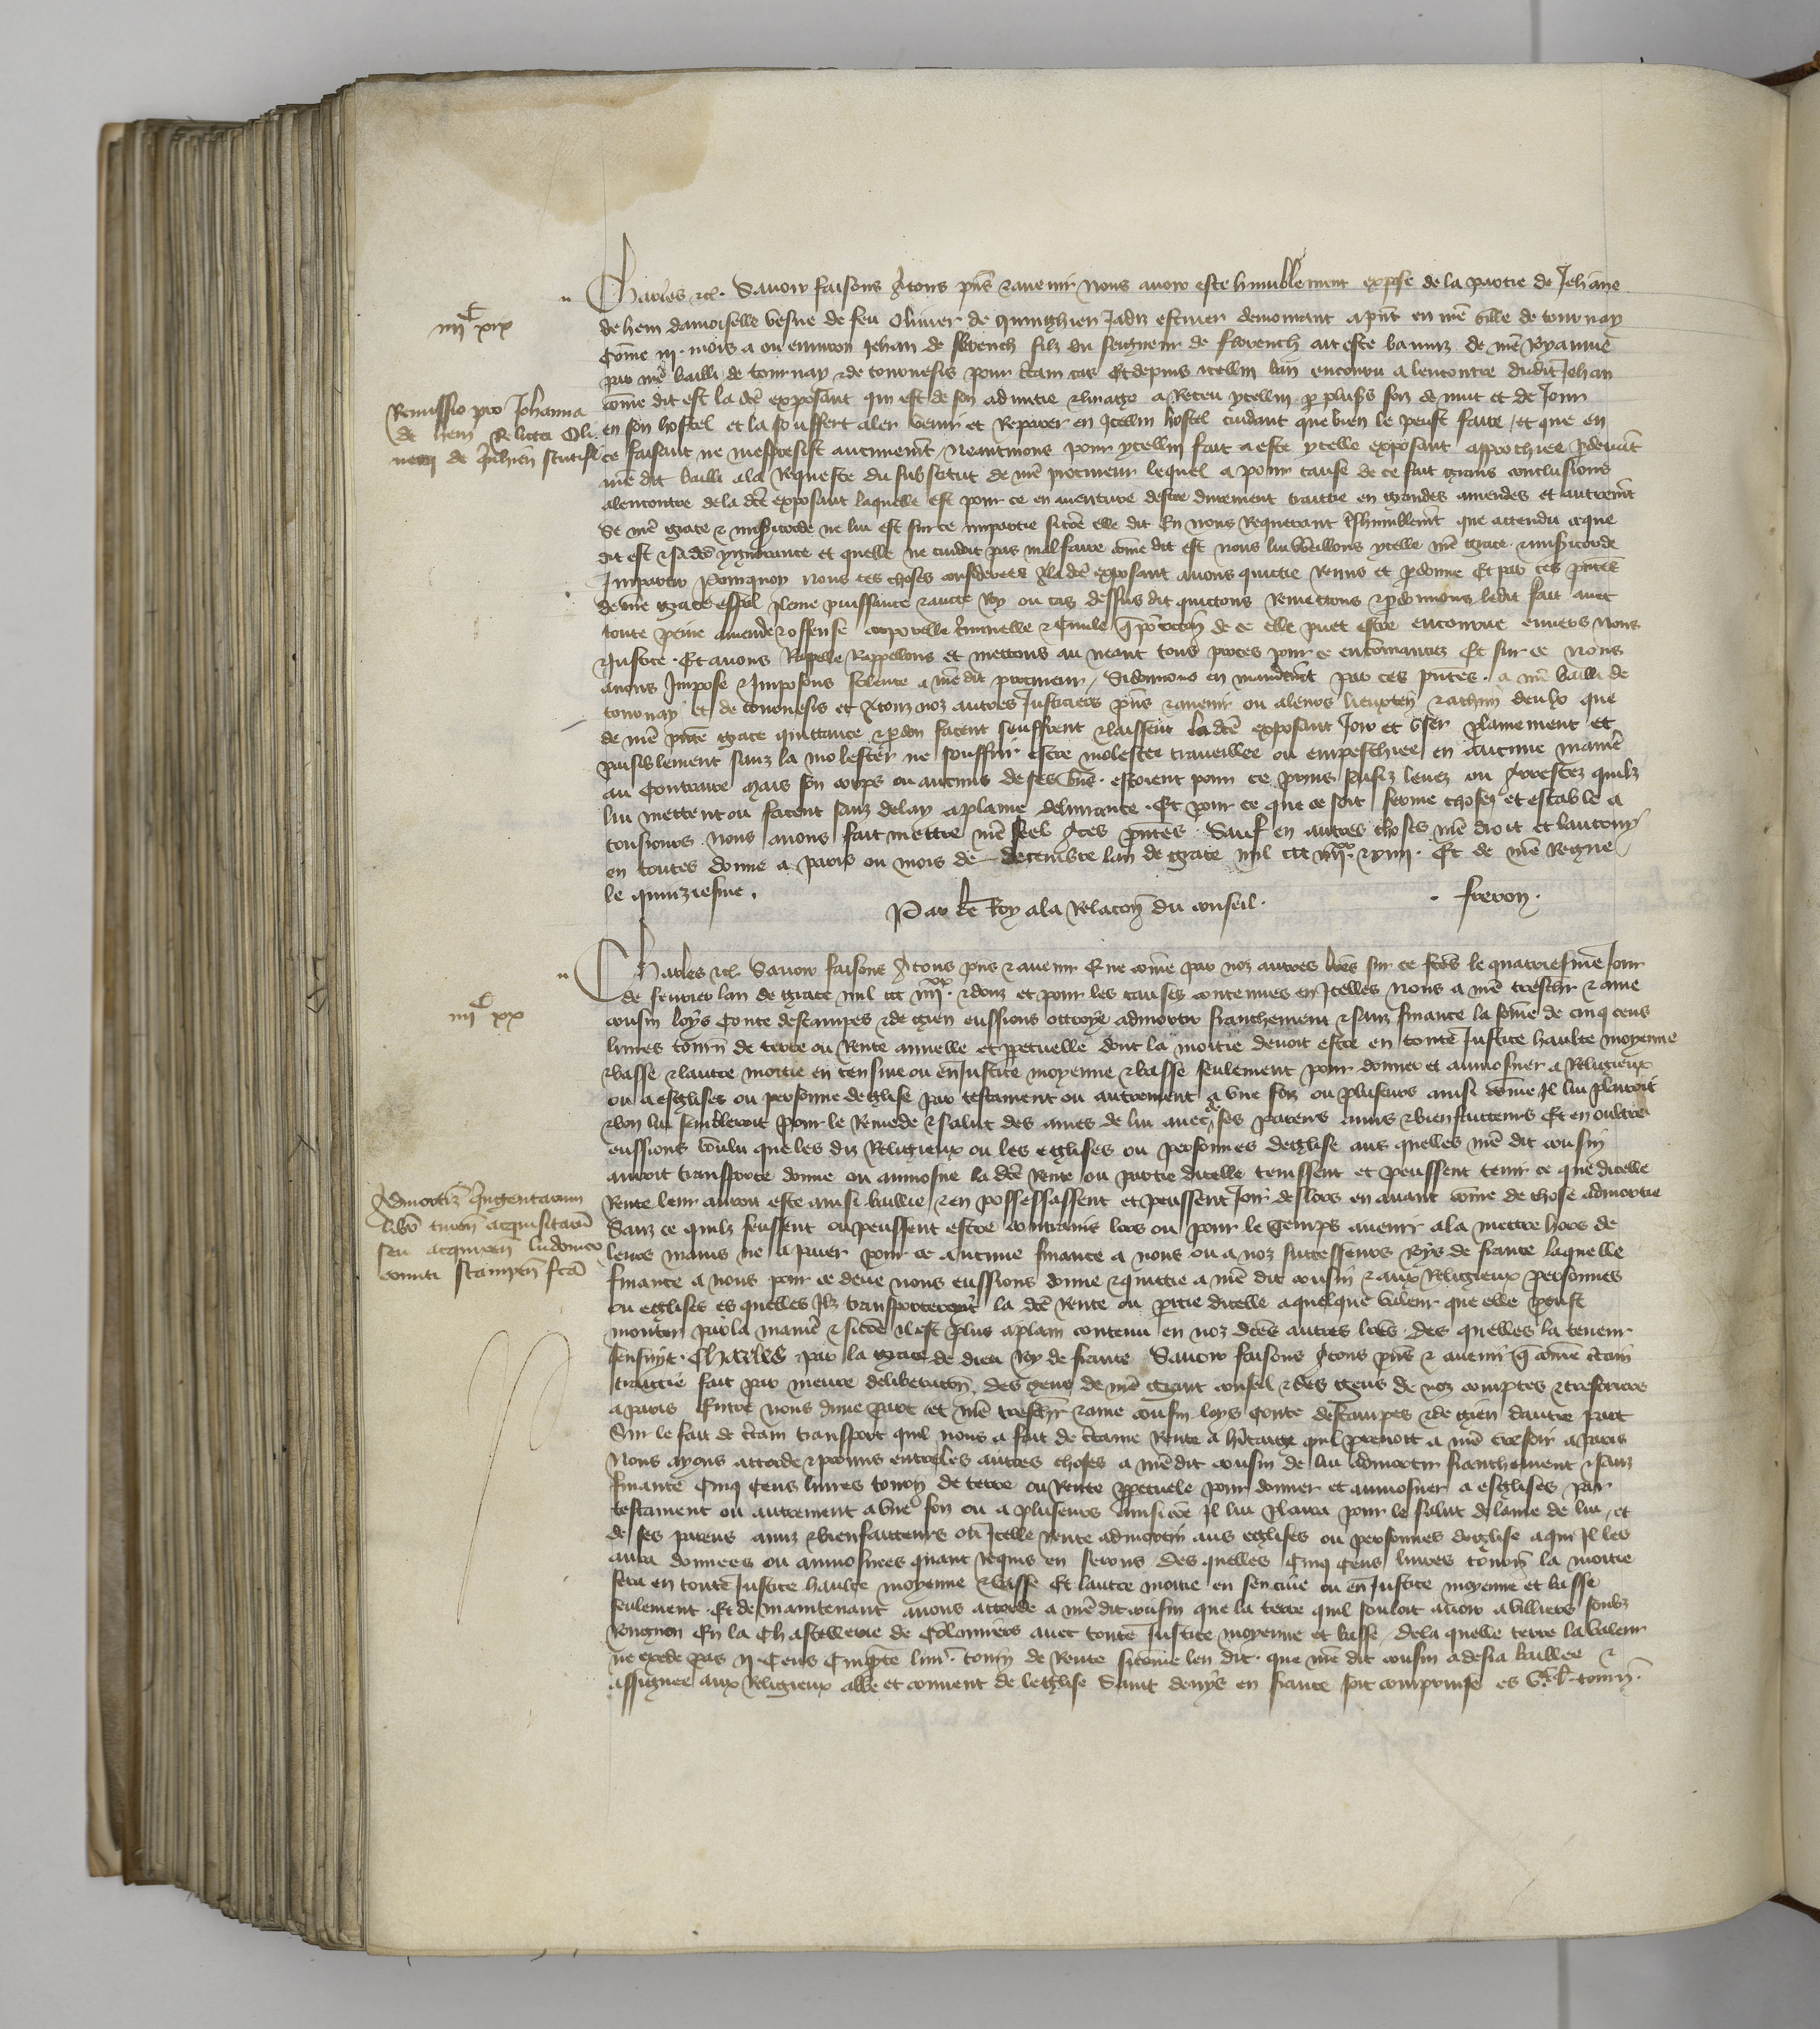 Charles etc. Savoir faisons a tous pñs et avenir Nous avoir este humblement expose de la partie de Jehane
iiijᶜ xix
de hem damoiselle vesve de feu Olivier de quinghien Jadiz escuier demourant a pñt en nrẽ ville de tournay
Cõme iij mois a ou environ Jehan de filz du seigneur de ait este banniz de nrẽ Royaume
par nrẽ bailli de tournay et de tournesis pour c̃tain cas Et depuis icellui ban encouru a lencontre dudit Jehan
Remissio pro Johanna
de hem Relicta Oli
verij de scutif
cõme dit est la dcẽ exposant qui est de son et linage a Receu ycellui p plus̃s foiz de nuit et de Jour
en son hostel et la souffert aler venir et Reparer en Icellui hostel cuidant que bien le peust faire et que en
ce faisant ne mespresist aucunemẽt Neantmoins pour ycellui fait a este ycelle exposant approchiee p̃devãt
nrẽ dit bailli a la Requeste du substitut de nrẽ procureur lequel a pour cause de ce fait grans conclusions
alencontre de la dcẽ exposant laquelle est pour ce en aventure destre durement traittie en grandes amendes et autremẽt
Se nrẽ grace et mis̃icorde ne lui est sur ce impartie sicõe elle dit En nous Requerant t̃shumblemẽt que attendu ce que
dit est et sa dcẽ ygnorance et quelle ne cuidoit pas malfaire cõme dit est nous lui vueillons ycelle nrẽ grace et mis̃icorde
Impartir Pourquoy nous ces choses considerees a la dcẽ exposant avons quictie Remis et p̃donne Et par ces pñtes
de nrẽ grace esp̃al plaine puissance et aucte Roy ou cas dessus dit quictons Remettons et p̃donnons ledit fait avec
toute peine amende et offense corporelle c̃iminelle et Civile de ce elle puet estre encourue envers nous
et Justice Et avons Rapelle Rappellons et mettons au neant tous proces pour ce encõmanciez Et sur ce Nous
avons Impose et Imposons silence a nrẽ dit procureur Si donnons en mandemẽt par ces pñtes a nrẽ bailli de
tournay et de tournesis et a touz noz autres Justiciers pñs et avenir ou a leurs lieuxteñ et a chũn deulx que
de nrẽ pñte grace quittance et p̃don facent seuffrent et laissent la dcẽ exposant Joir et user plainement et
paisiblement sanz la molester ne souffrir estre molestee traveillee ou empeschiee en aucune manie͂
au Contraire Mais son corps ou aucuns de ses biẽs estoient pour ce prins saisiz levez ou arrestez quilz
lui mettent ou facent sanz delay a plaine delivrance Et pour ce que ce soit ferme chose et estable a
tousiours Nous avons fait mettre nrẽ seel a ces pñtes Sauf en autres choses nrẽ droit et lautruy
en toutes donne a Paris ou mois de decembre lan de grace mil ccc iiijˣˣ et xiiij Et de nrẽ Regne
le quinziesme
Par le Roy a la Relacoñ du conseil freron

Charles etc Savoir faisons a tous pñs et avenir Que cõme par noz autres lr̃es sur ce fctẽs le quatriesme Jour
iiijᶜ xx
de fevrier lan de grace mil ccc iiijˣˣ et douz et pour les causes contenues en Icelles Nous a nrẽ treschr̃ et ame
cousin loys Conte destampes et de gien eussions ottroye admortir franchement et sanz finance la sõme de cinq cens
livres tourñ de terre ou Rente annuelle et p̃petuelle dont la moitie devoit estre en toute Justice haulte moyenne
et basse et lautre moitie en censive ou en Justice moyenne et basse seulement pour donner et aumosner a Religieux
ou a esglises ou personne deglise par testament ou autrement a une foiz ou pluseurs ainsi cõme Il lui plairoit
et bon lui sembleroit Pour le Remede et salut des ames de lui avec de ses parens amis et bienfaitteurs Et en oultre
eussions voulu que les diz Religieux ou les eglises ou personnes deglise aus quelles nrẽ dit cousin
auroit transporte donne ou aumosne la dcẽ Rente ou partie dicelle tenissent et peussent tenir ce que dicelle
Admortiz͂ Quingentarum
libr͂ turoñ acquisitarũ
seu acquireñ ludovico
comiti stampeñ fctã
Rente leur auroit este ainsi baillie et en possessassent et peussent Joir deslors en avant cõme de chose admortie
Sanz ce quilz feussent ou peussent estre contrains lors ou pour le temps avenir a la mettre hors de
leurs mains ne a paier pour ce aucune finance a nous ou a noz successeurs Roys de france laquelle
finance a nous pour ce deue nous eussions donne et quittie a nrẽ dit cousin et aux Religieux personnes
ou eglises es quelles Ilz transporteroyẽt la dcẽ Rente ou p̃tie dicelle a quelque valeur que elle peust
monter par la manie͂ et sicõe il est plus a plain contenu en noz dcẽs autres lr̃es des quelles la teneur
sensuyt Charles par la grace de dieu Roy de france Savoir faisons a tous pñs et avenir q̃ cõme c̃tain
traictie fait par meure deliberacoñ des gens de nrẽ grant conseil et des gens de noz comptes et tresoriers
a paris Entre nous dune part et nrẽ treschr̃ et ame cousin loys Conte destampes et de gien dautre part
Sur le fait de c̃tain transport quil nous a fait de c̃taine Rente a hr̃itaige quil prenoit a nrẽ tresor a paris
Nous ayons accorde et promis entre les autres choses a nrẽ dit cousin de lui admortir franchement et sanz
finance Cinq Cens livres tourñ de terre ou Rente p̃petuele pour donner et aumosner a esglises par
testament ou autrement a une foiz ou a pluseurs ainsi cõe Il lui plaira pour le salut de lame de lui et
de ses parens amiz et bienfaitteurs ou Icelle Rente admortir aus eglises ou personnes deglise a qui Il les
aura donnees ou aumosnees quant Requis en serons Des quelles Cinq Cens livres tourñ la moitie
sera en toute Justice haulte moyenne et basse Et lautre moitie en sencive ou en Justice moyenne et basse
seulement Et de maintenant avons accorde a nrẽ dit cousin que la terre quil souloit avoir a Villiers soubz
En la Chastellerie de Colommiers avec toute Justice moyenne et basse de la quelle terre la valeur
ne excede pas ij Cens Cinqte livr͂ tourñ de Rente sicõme len dit que nrẽ dit cousin a desia baillee et
assignee aux Religieux abbe et couvent de leglise Saint denys en france soit comprinse es vᶜ l̃ tourñ